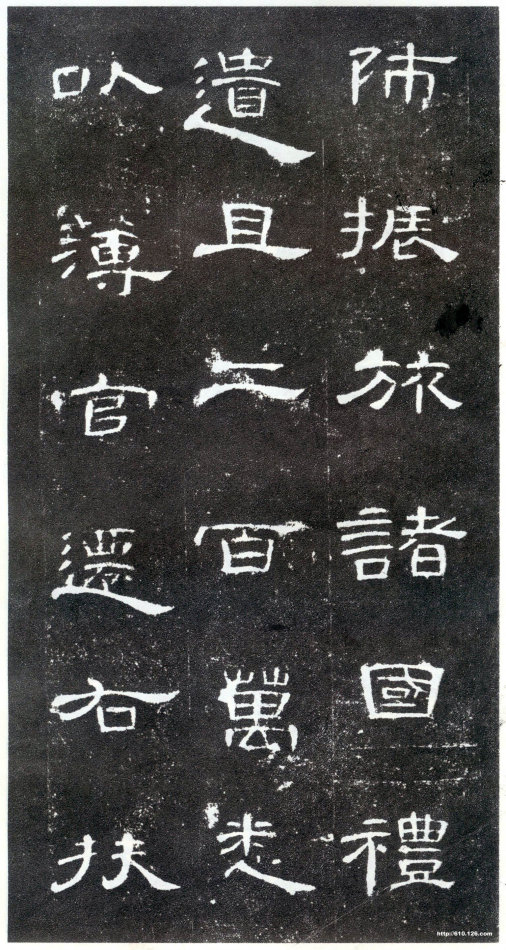 師振旅諸國禮
遺且二百萬悉
以薄官還右扶
http://610.126.com